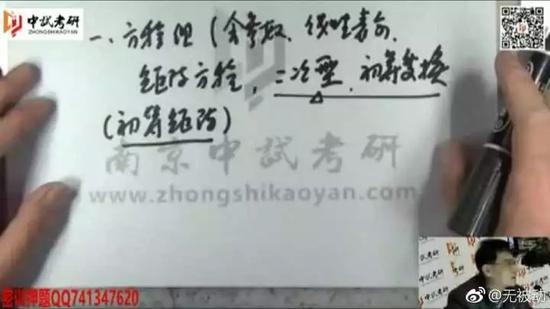 中試考研
ZHONGSHIKAOYAN
一、方程组（含参数、线性表示、
矩阵方程，二次型，初等变换
（初等矩阵）
南京中試考研
www.zhongshikaoyan.com
密训押题QQ741347620
@无被动